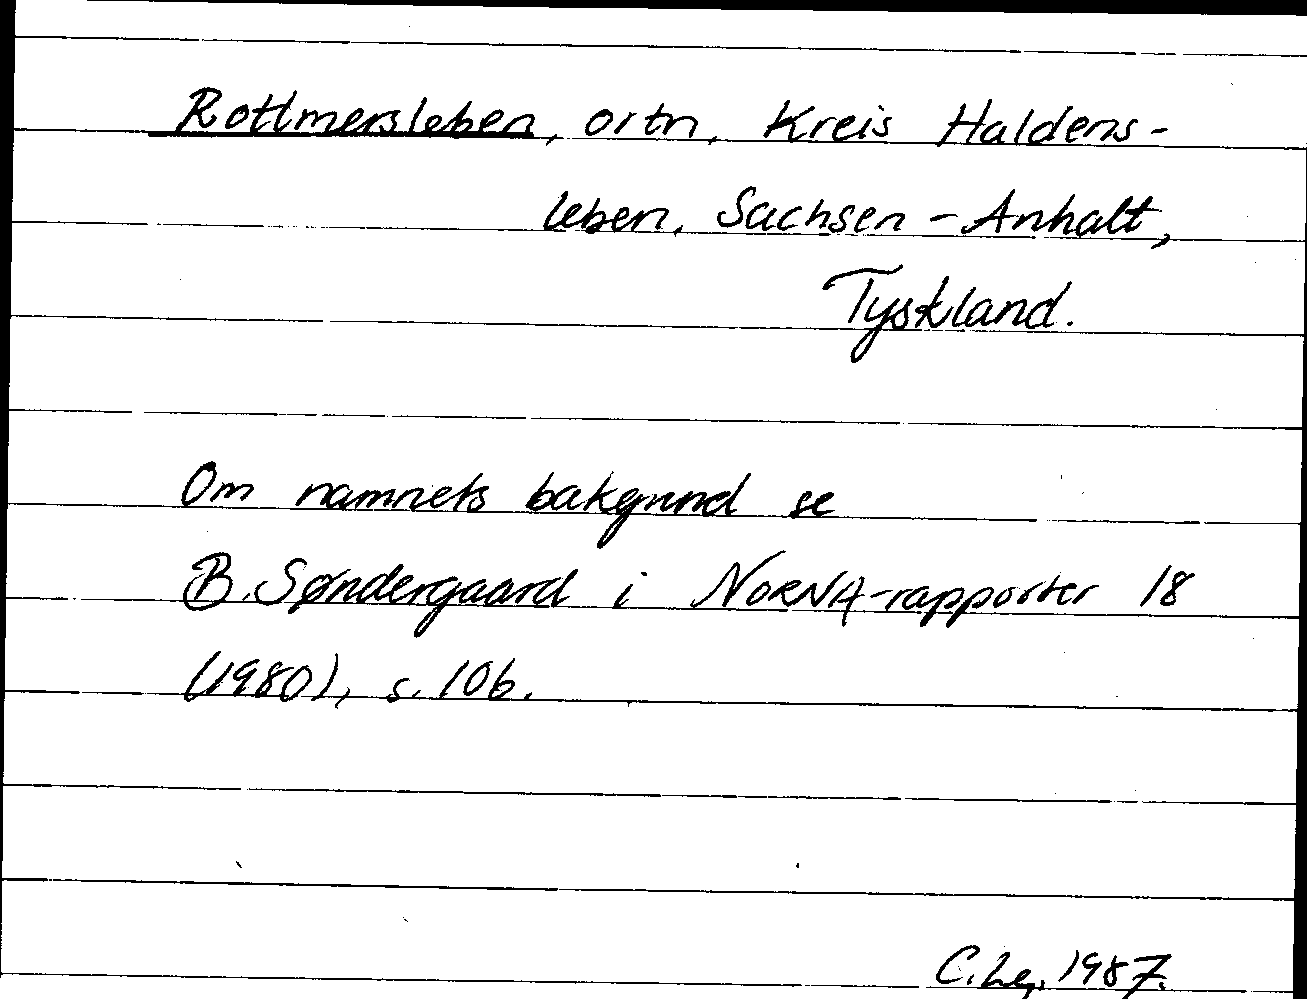 Rottmersleben, ortn, Kreis Haldens-
leben, Sachsen-Anhalt,
Tyskland.
Om namnets bakgrund se
B. Søndergaard i NORNA-rapporter 18
(1980), s. 106.
C. Lg. 1987.